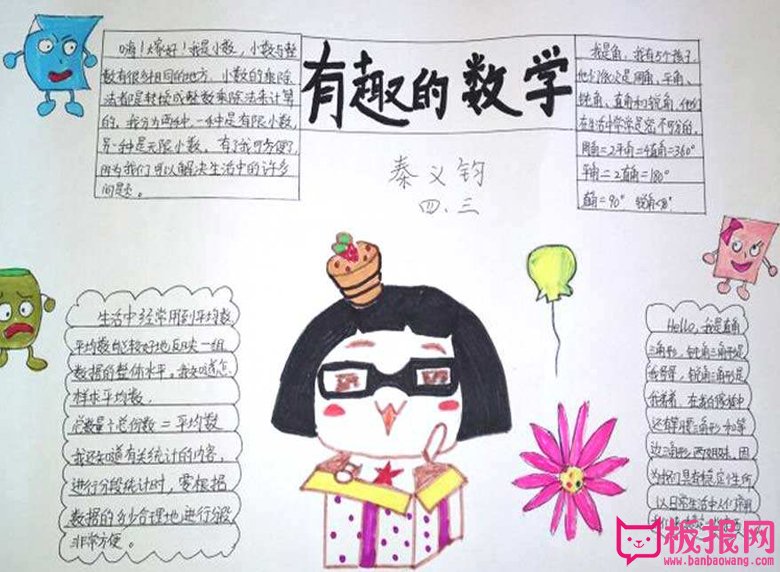 有趣的数学
秦义钧
四.三
嗨！大家好！我是小数，小数与整
数有很多相同的地方。小数的乘除
法都是转换成整数乘除法来计算
的。我分为两种，一种是有限小数，
另一种是无限小数。有了我可方便了，
因为我们可以解决生活中的许多
问题。
我是角，我有5个孩子，
他们依次是周角、平角、
钝角、直角和锐角，他们
在生活中常常是密不可分的，
周角=2平角=4直角=360°
平角=2直角=180°
直角=90° 锐角<90°
生活中经常用到平均数
平均数能较好地反映一组
数据的整体水平。我知道怎
样求平均数，
总数量÷总份数=平均数
我还知道有关统计的内容，
进行分段统计时，要根据
数据的多少合理地进行分段
非常方便。
Hello，我是直角
三角形，钝角三角形是
我哥哥，锐角三角形是
我弟弟，在我的家族中
还有等腰三角形和等
边三角形两姐妹，因
为我们具有稳定性所
以日常生活中人们常用
板报网
www.banbaowang.com